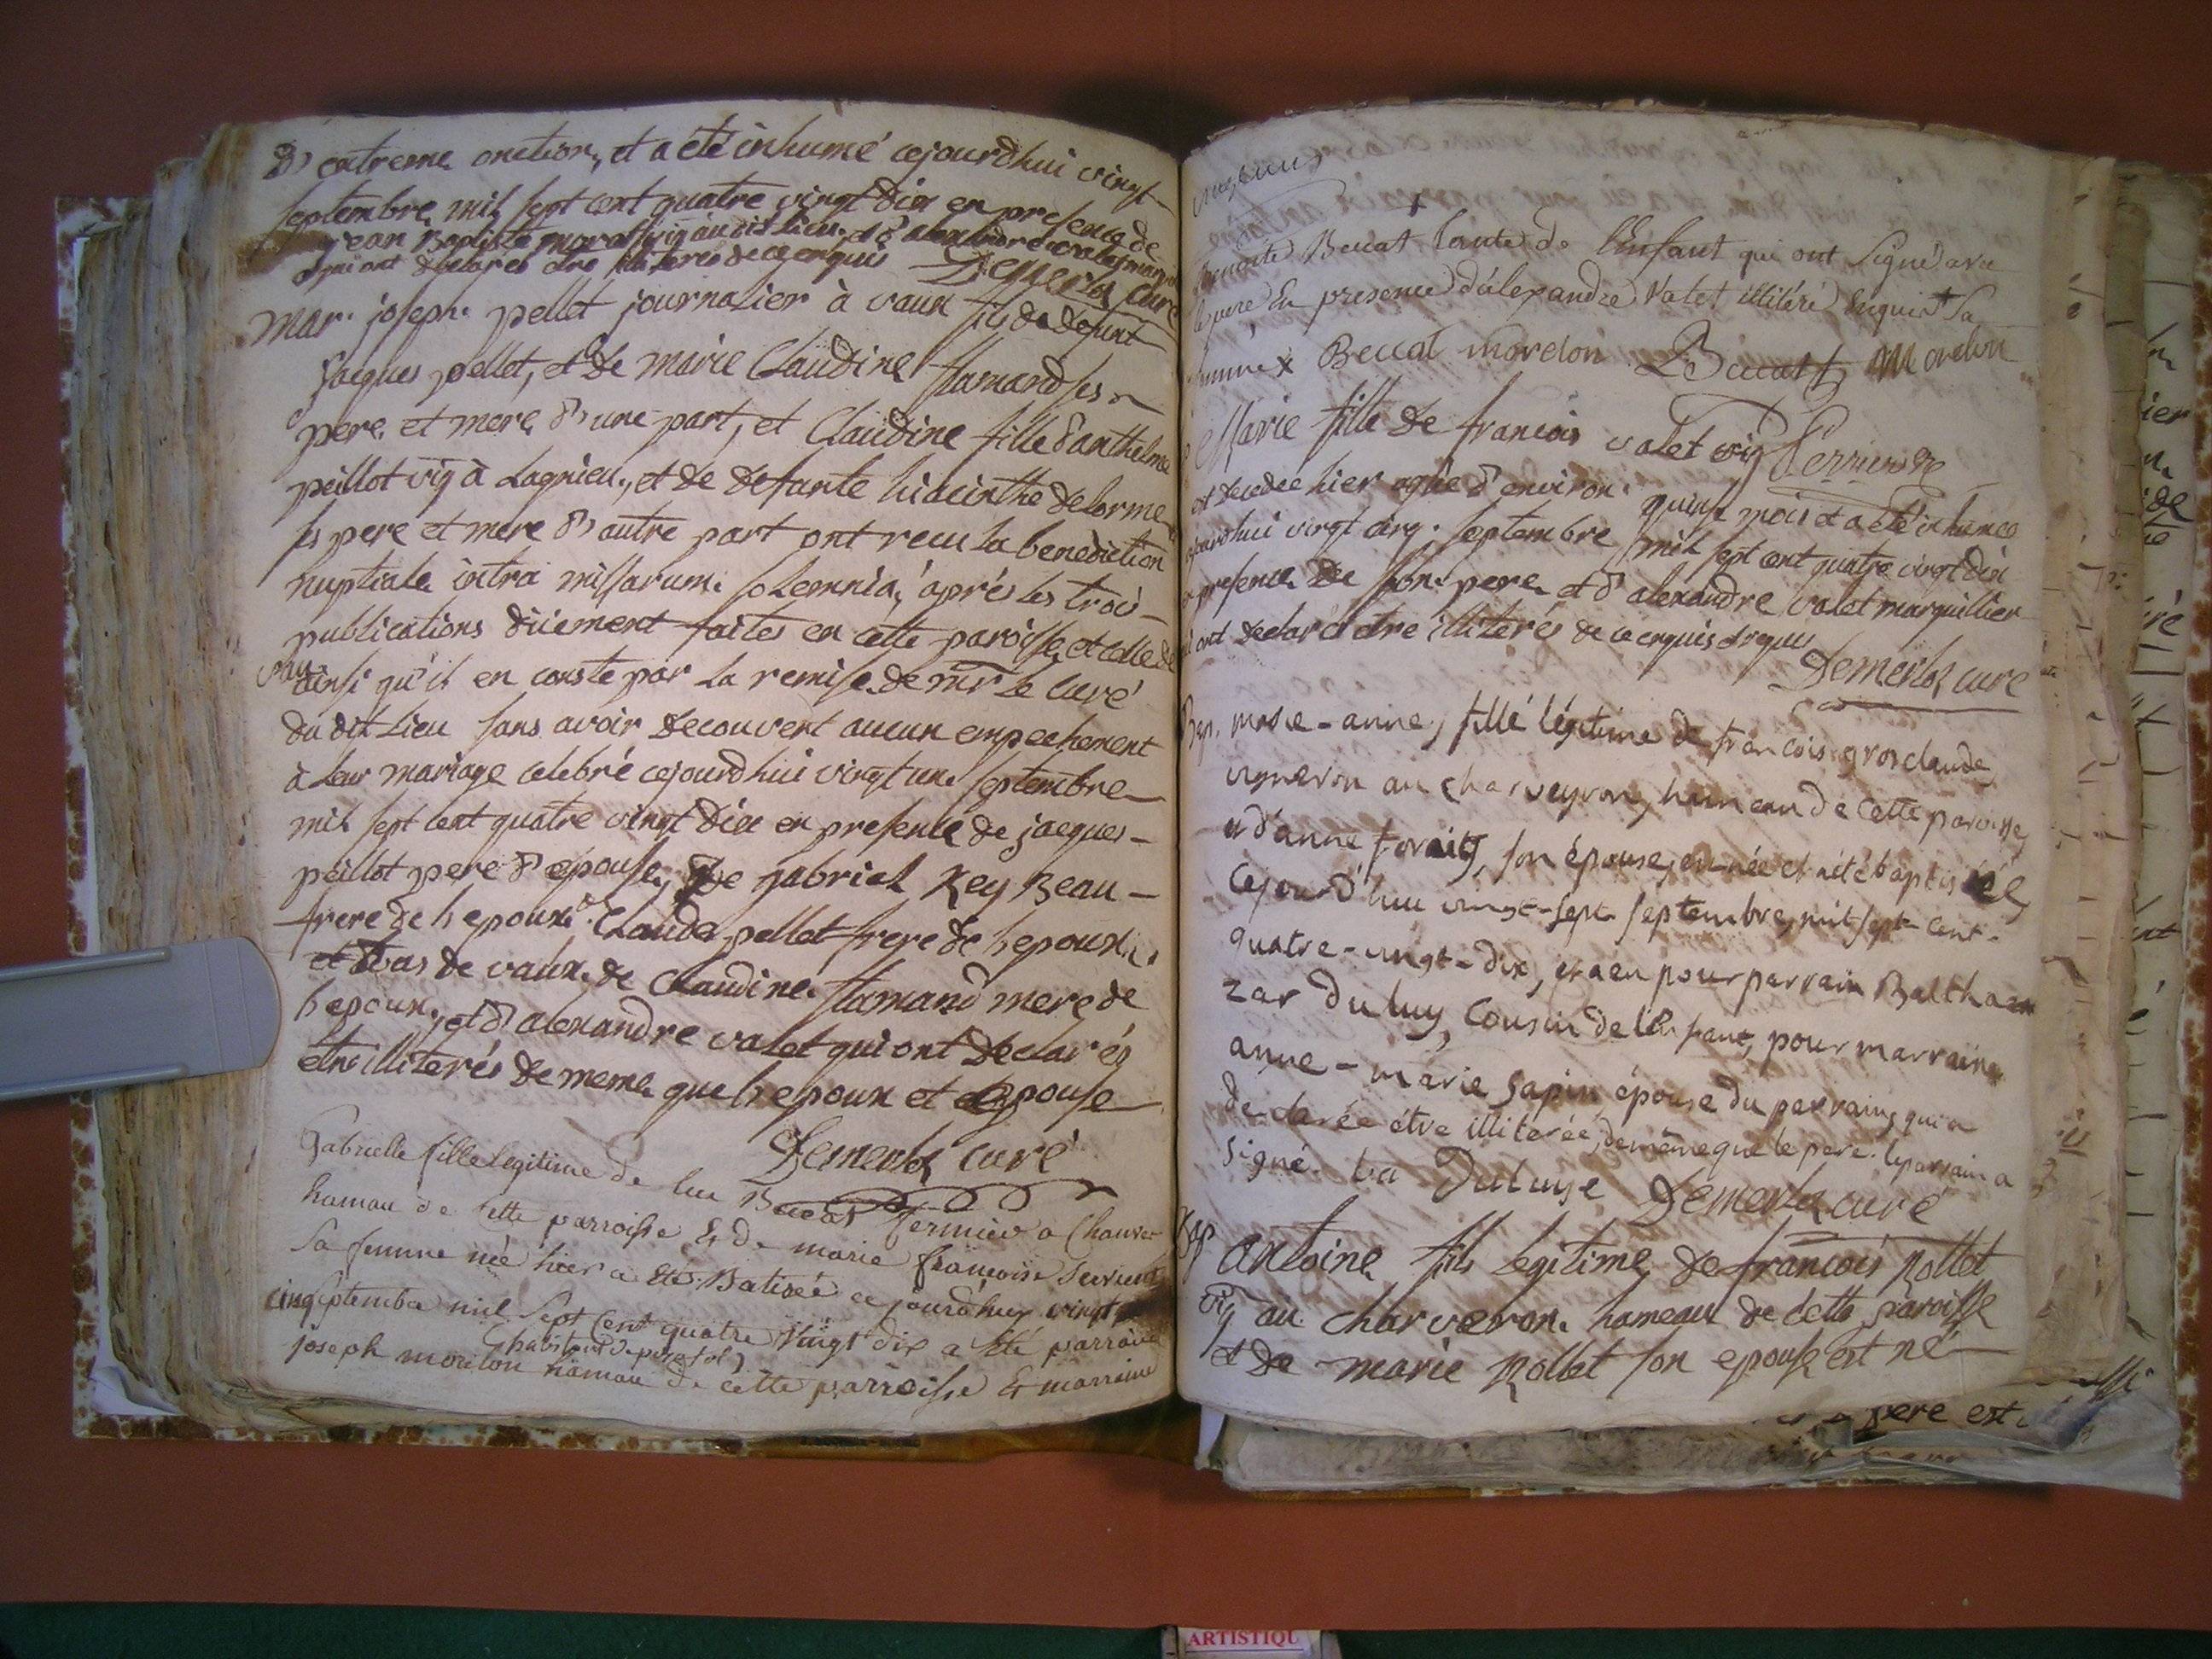 d'extreme onction, et a été inhumé cejourdhui vingt
septembre mil sept cent quatre vingt dix en presence de
jean Baptiste morat vig audit lieu et d'alexandre valet
qui ont declarés etre illiterés de ce enquis Demerloz curé
Mar. joseph pellet journalier à vaux fils de defunt
jacques pellet, et de marie Claudine flamand ses
pere et mere d'une part, et Claudine fille d'anthelme
peillot vig à Lagnieu, et de defunte hiacinthe delorme
ses pere et mere d'autre part ont recu la benediction
nuptiale intra missarum solemnia, aprés les trois
publications düement faites en cette paroisse, et celle de
vaux ainsi qu'il en conste par la remise de mr le curé
du dit Lieu sans avoir decouvert aucun empechement
à leur mariage celebré cejourdhui vingt un septembre
mil sept cent quatre vingt dix en presence de jacques
peillot pere d'epouse, de gabriel Rey Beau-
frere de l'epoux Claude pellet frere de l'epoux
de vaux de Claudine flamand mere de
l'epoux, et d'alexandre valet qui ont declarés
etre illiterés de meme que l'epoux et epouse
Demerloz curé
Gabrielle fille legitime de luc Beccat fermier a
hamau de cette parroisse & de marie françoise
sa femme née hier a été Batisée ce jourdhuy vingt
cinq septembre mil sept cent quatre vingt dix a été parrain
(habitant de
joseph morelon hamau de cette parroisse & marraine
Beccat tante de l'Enfant qui ont signé avec
le pere En presence d'alexandre Valet illitéré Enquis + sa
femme x Beccat mordon Beccat Morelon
Perrier
Marie fille de francois valet vig
est decedée hier agée d'environ quinze mois et a été inhumée
cejourdhui vingt cinq septembre mil sept cent quatre vingt dix
en presence de son pere et d'alexandre valet marguillier
qui ont declaré etre illiterés de ce enquis et requis
Demerloz curé
Bap. marie-anne, fille légitime de francois grosclaude
vigneron au charveyron, hameau de cette paroisse,
et d'anne forait, son épouse, est née et a été baptisée
cejourd'hui vingt-sept septembre, mil sept-cent-
quatre-vingt-dix, et a eu pour parrain Baltha
zar duluy, cousin de l'enfant, pour marraine
anne-marie sapin épouse du parrain, qui a
declarée étre illiterée, de même que le pere. le parrain a
signé. ba Duluye Demerloz curé
Bap antoine fils legitime de francois Rollet
vig au charveron hameau de cette paroisse
et de marie Rollet son epouse est né
pere est
ARTISTIQU